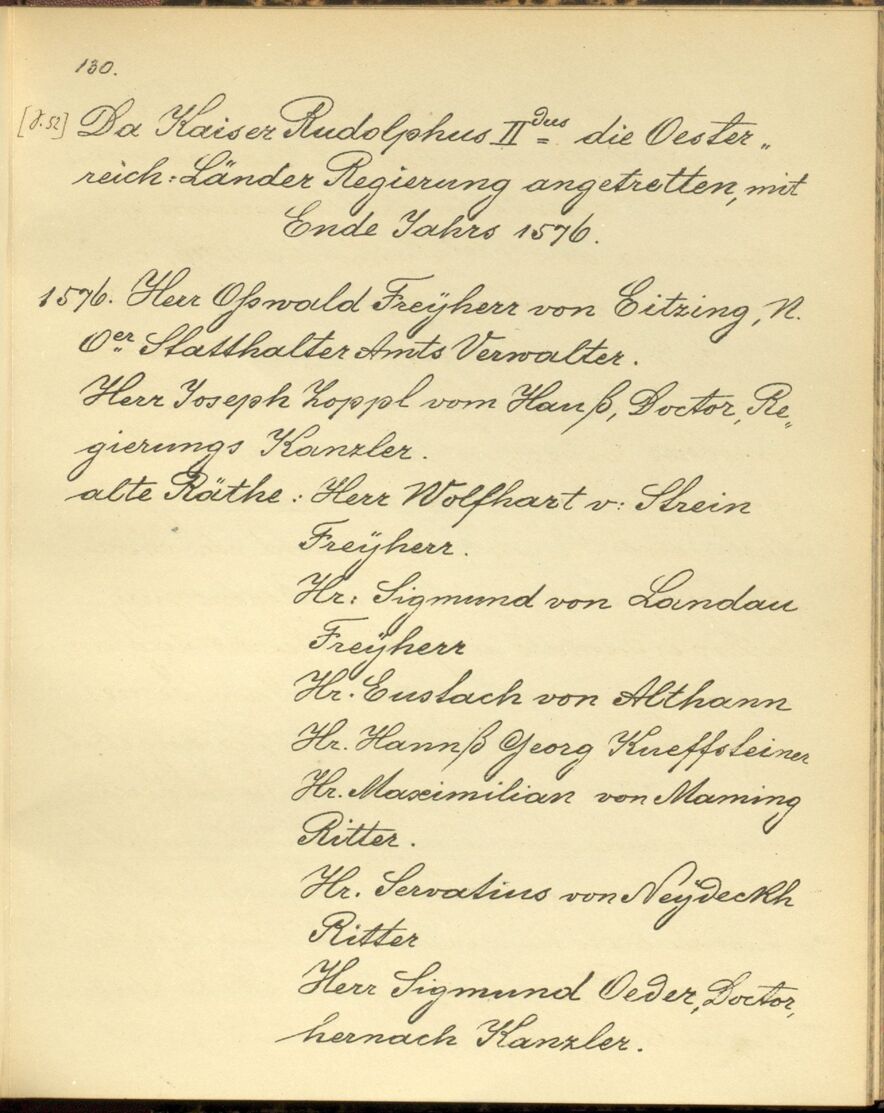 130.
[f. 52] Da Kaiser Rudolphus II dus die Oester„
reich: Länder Regierung angetretten, mit
Ende Jahrs 1576.
1576. Herr Oßwald Freÿherr von Eitzing, N.
Oer Statthalter Amts Verwalter.
Herr Joseph Zoppl vom Hauß, Doctor, Re„
gierungs Kanzler.
alte Räthe: Herr Wolfhart v: Strein
Freÿherr.
Hr: Sigmund von Landau
Freÿherr
Hr. Eustach von Althann
Hr. Hannß Georg Kueffsteiner
Hr. Maximilian von Maming
Ritter.
Hr. Servatius von Neÿdeckh
Ritter
Herr Sigmund Oeder, Doctor,
hernach Kanzler.